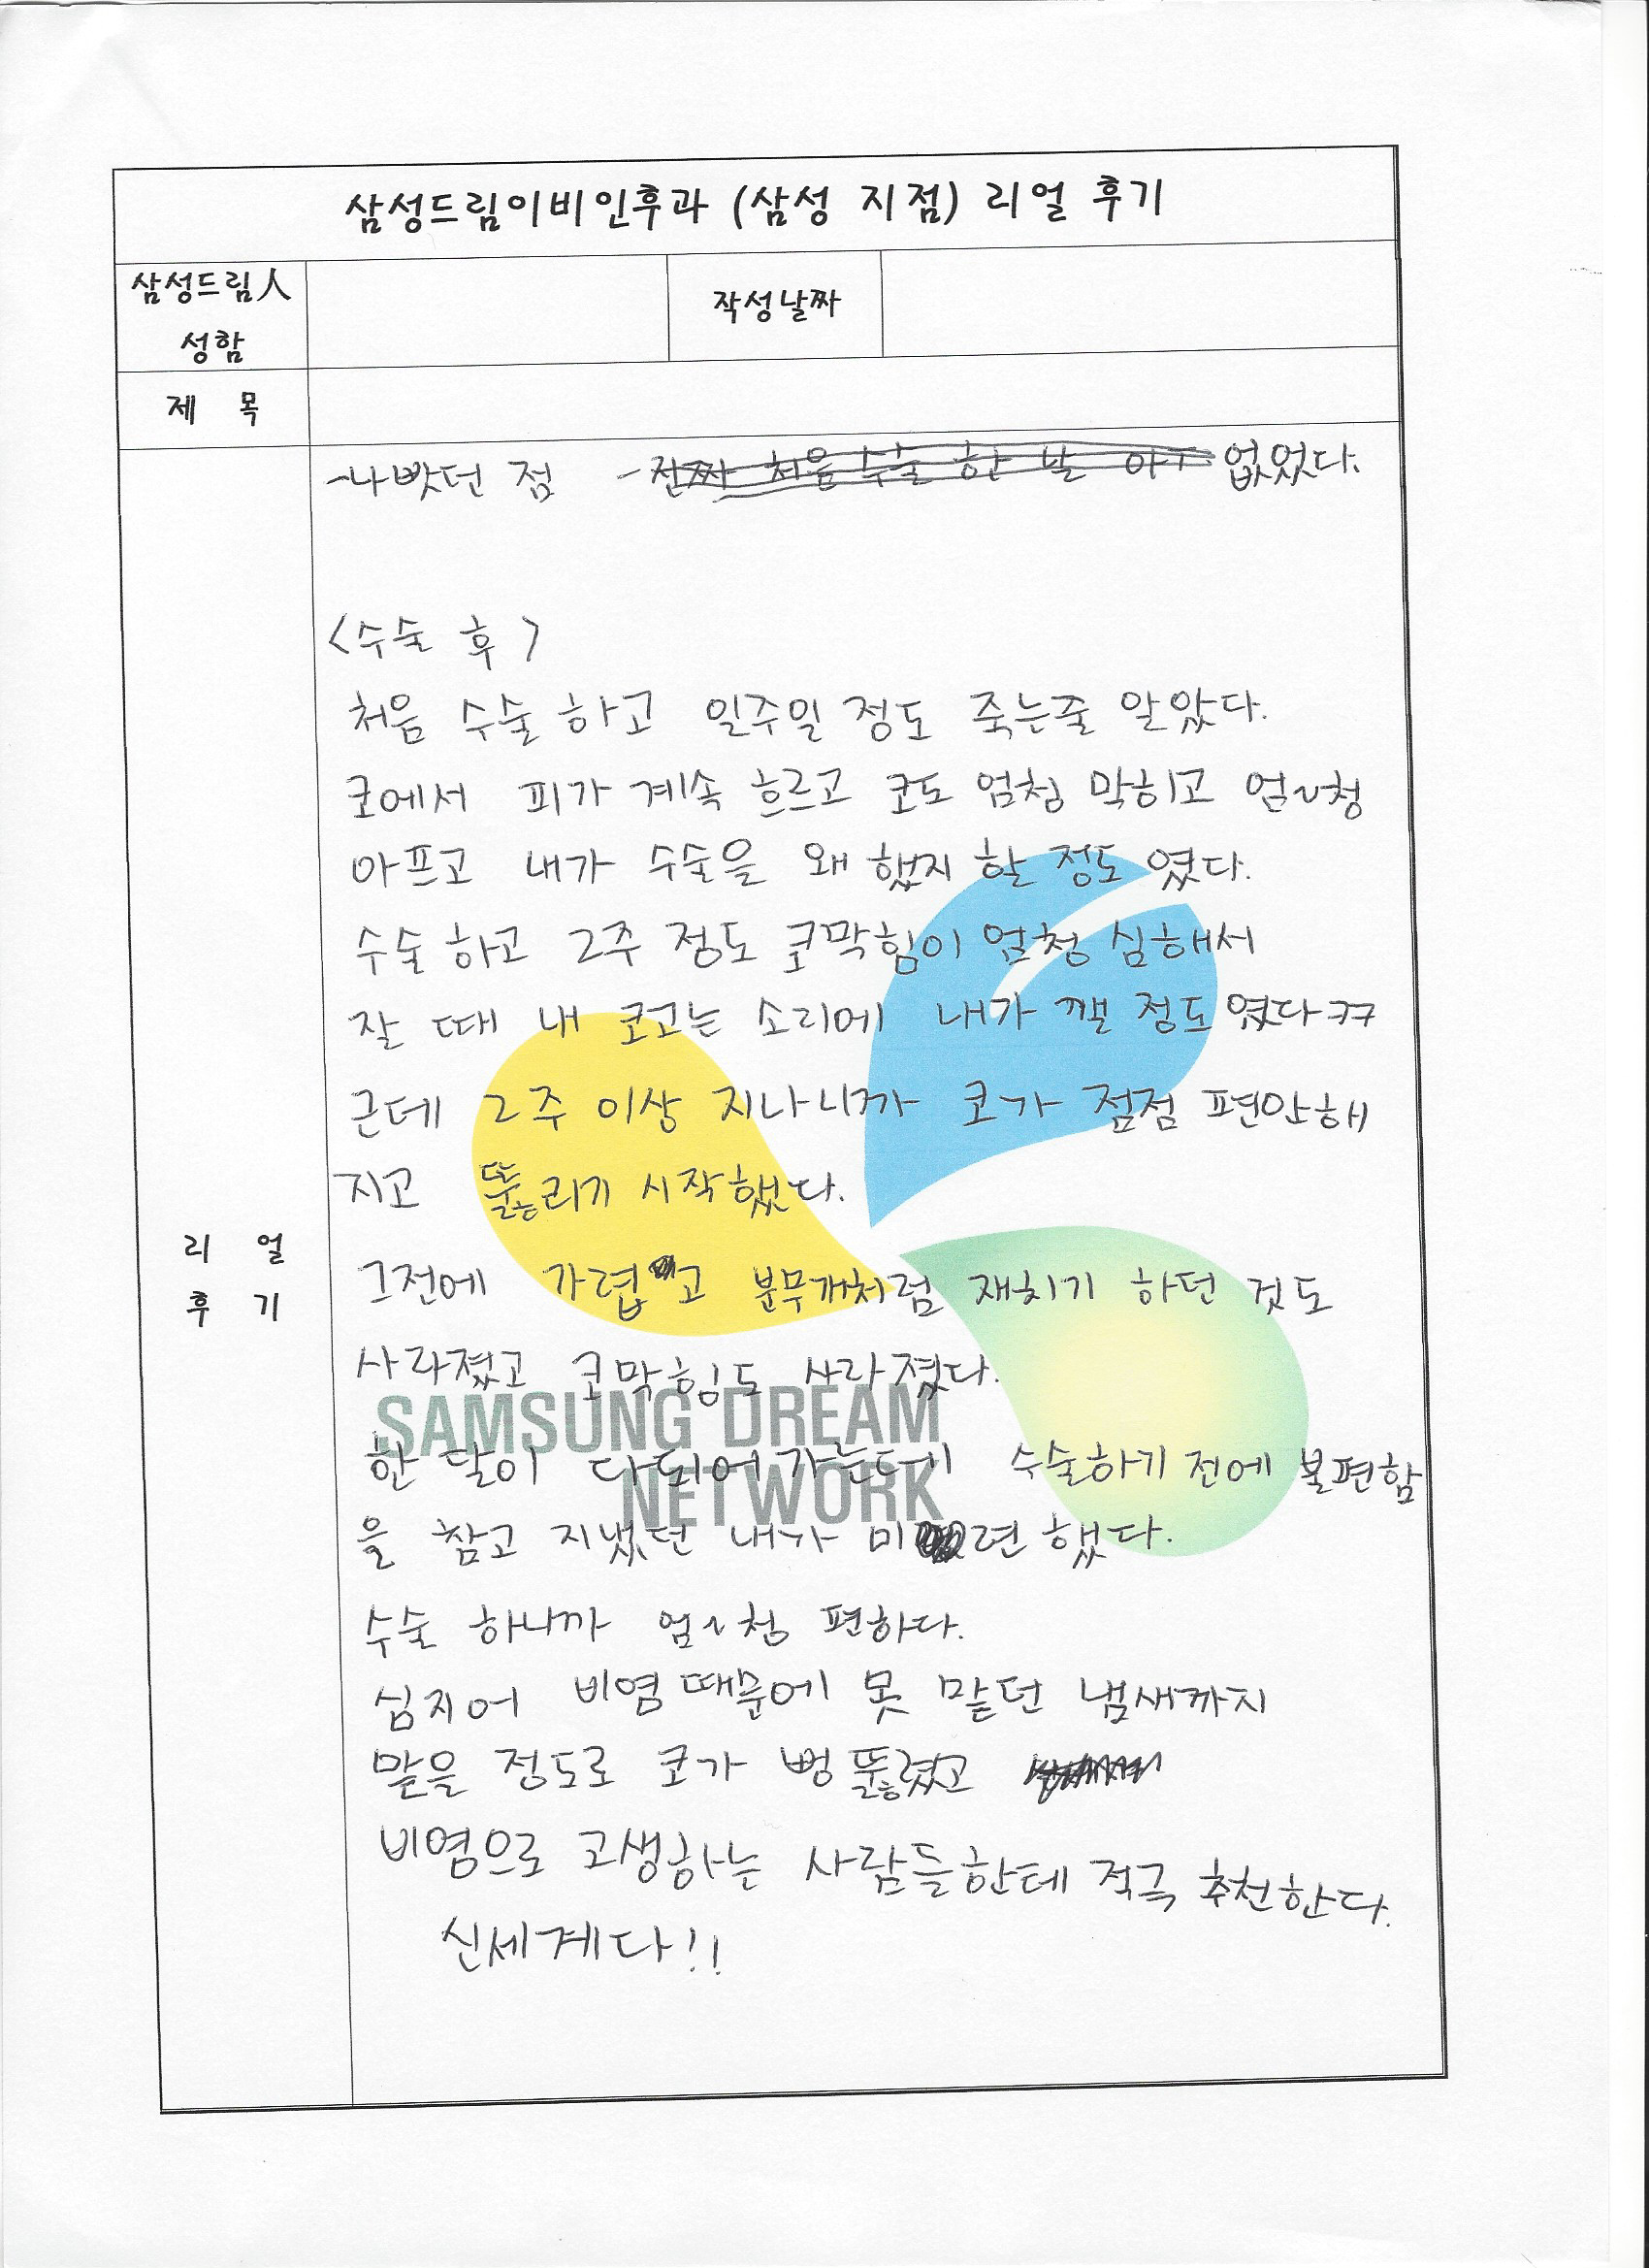 삼성드림이비인후과 (삼성 지점) 리얼 후기
삼성드림人
성함
작성날짜
제 목
-나빴던 점 - 진짜 처음 수술 한 날 없었다.
<수술 후>
처음 수술 하고 일주일 정도 죽는줄 알았다.
코에서 피가 계속 흐르고 코도 엄청 막히고 엄~청
아프고 내가 수술을 왜 했지 할 정도 였다.
수술 하고 2주 정도 코막힘이 엄청 심해서
잘 때 내 코고는 소리에 내가 깰 정도 였다ㅋㅋ
근데 2주 이상 지나니까 코가 점점 편안해
지고 뚫리기 시작했다.
리 얼
후 기
그전에 가렵고 분무개처럼 재치기 하던 것도
사라졌고 코막힘도 사라졌다.
SAMSUNG DREAM
NETWORK
한 달이 다되어 가는데 수술하기 전에 불편함
을 참고 지냈던 내가 미련 했다.
수술 하니까 엄~청 편하다.
심지어 비염 때문에 못 맡던 냄새까지
맡을 정도로 코가 뻥 뚫렸고
비염으로 고생하는 사람들한테 적극 추천한다.
신세계다!!